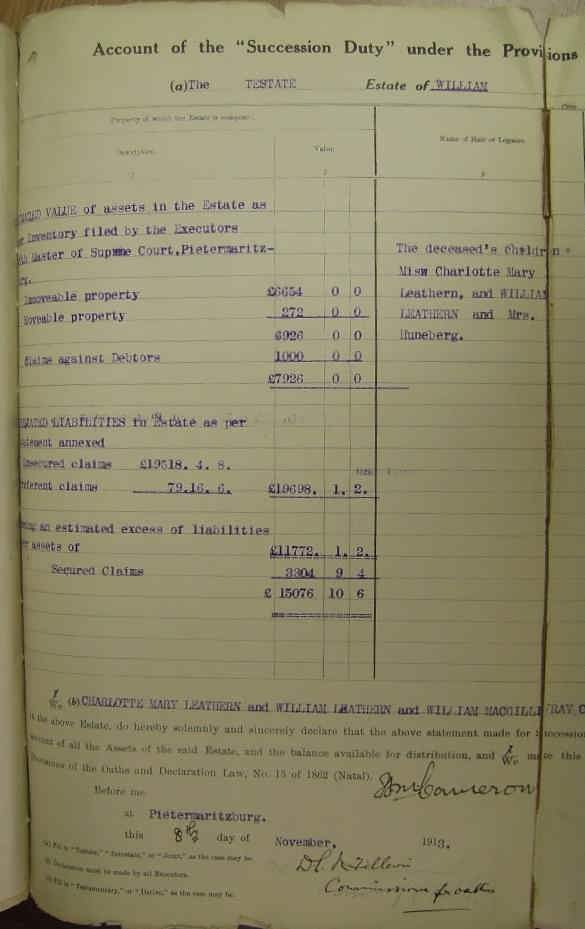 Account of the "Succession Duty" under the Provisions
(a) The TESTATE Estate of WILLIAM
Property of which the Estate is composed.
Description. Value. Name of Heir or Legatee.
1 2 3
VALUE of assets in the Estate as
Inventory filed by the Executors
Master of Supreme Court,Pietermaritz-
rg.
The deceased's Children
Misw Charlotte Mary
Leathern, and WILLIAM
LEATHERN and Mrs.
Huneberg.
Immoveable property £6654 0 0
Moveable property 272 0 0
6926 0 0
Claims against Debtors 1000 0 0
£7926 0 0
LIABILITIES in Estate as per
atement annexed
nsecured claims £19518. 4. 8.
ferent claims 79.16. 6. £19698. 1. 2.
ing an estimated excess of liabilities
r assets of £11772. 1. 2.
Secured Claims 3304 9 4
£ 15076 10 6
I We (b) CHARLOTTE MARY LEATHERN and WILLIAM LEATHERN and WILLIAM MACGILLIVRAY C
the above Estate, do hereby solemnly and sincerely declare that the above statement made for Succession
account of all the Assets of the said Estate, and the balance available for distribution, and I We make this
Provisions of the Oaths and Declaration Law, No. 15 of 1862 (Natal).
WmCameron
Before me
at Pietermaritzburg.
this 8th day of November. 1913.
(a) Fill in "Testate," "Intestate," or "Joint," as the case may be.
(b) Declaration must to be made by all Executors.
(c) Fill in "Testamentary," or "Dative," as the case may be.
Commissioner for oaths